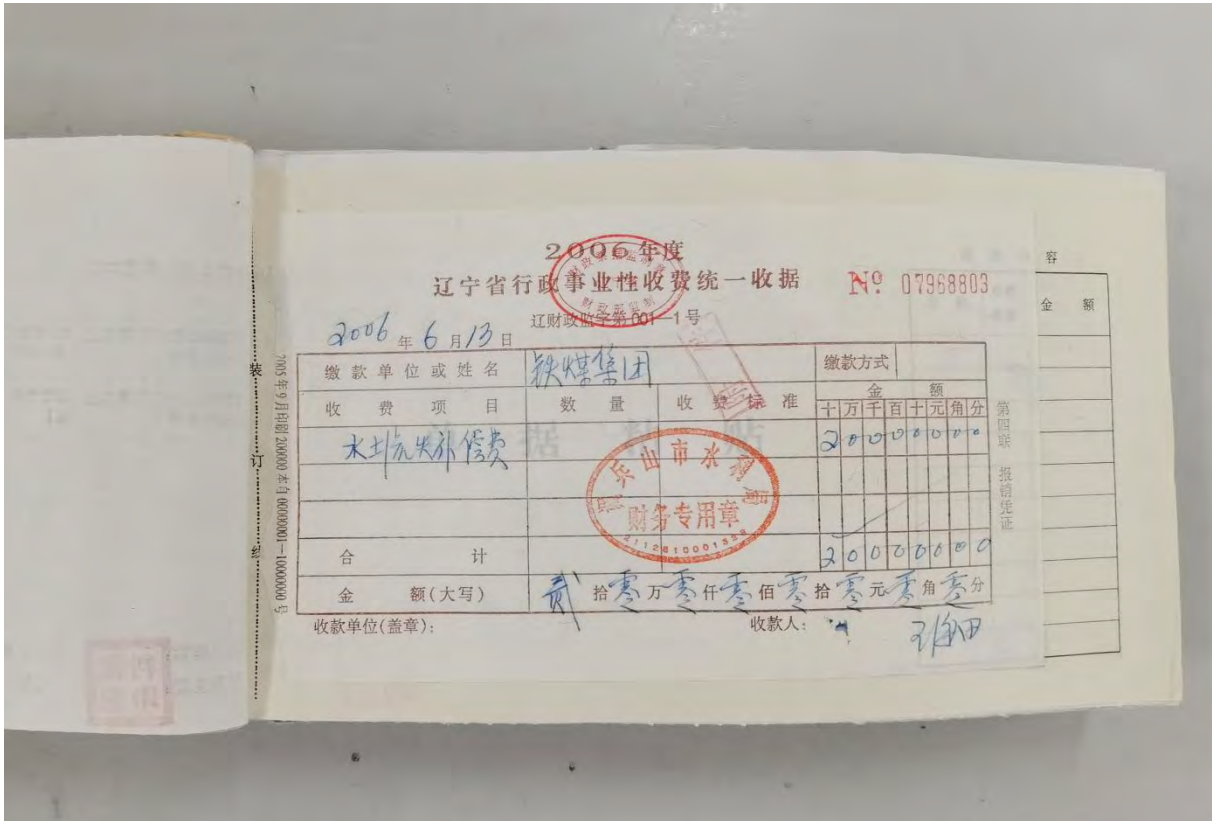 2006年度
辽宁省行政事业性收费统一收据 № 07968803
辽财政监字第001—1号
2006年6月13日
缴款单位或姓名 铁煤集团 缴款方式
收费项目 数量 收费标准 金额
十万千百十元角分
水土流失补偿费 20000000
合计 20000000
金额(大写) 贰拾零万零仟零佰零拾零元零角零分
收款单位(盖章): 收款人:
调兵山市水利局
财务专用章
财政部监制
第四联 报销凭证
2005年9月印刷200000本自00000001—10000000号
装
订
线
据 粘 贴
容
金额